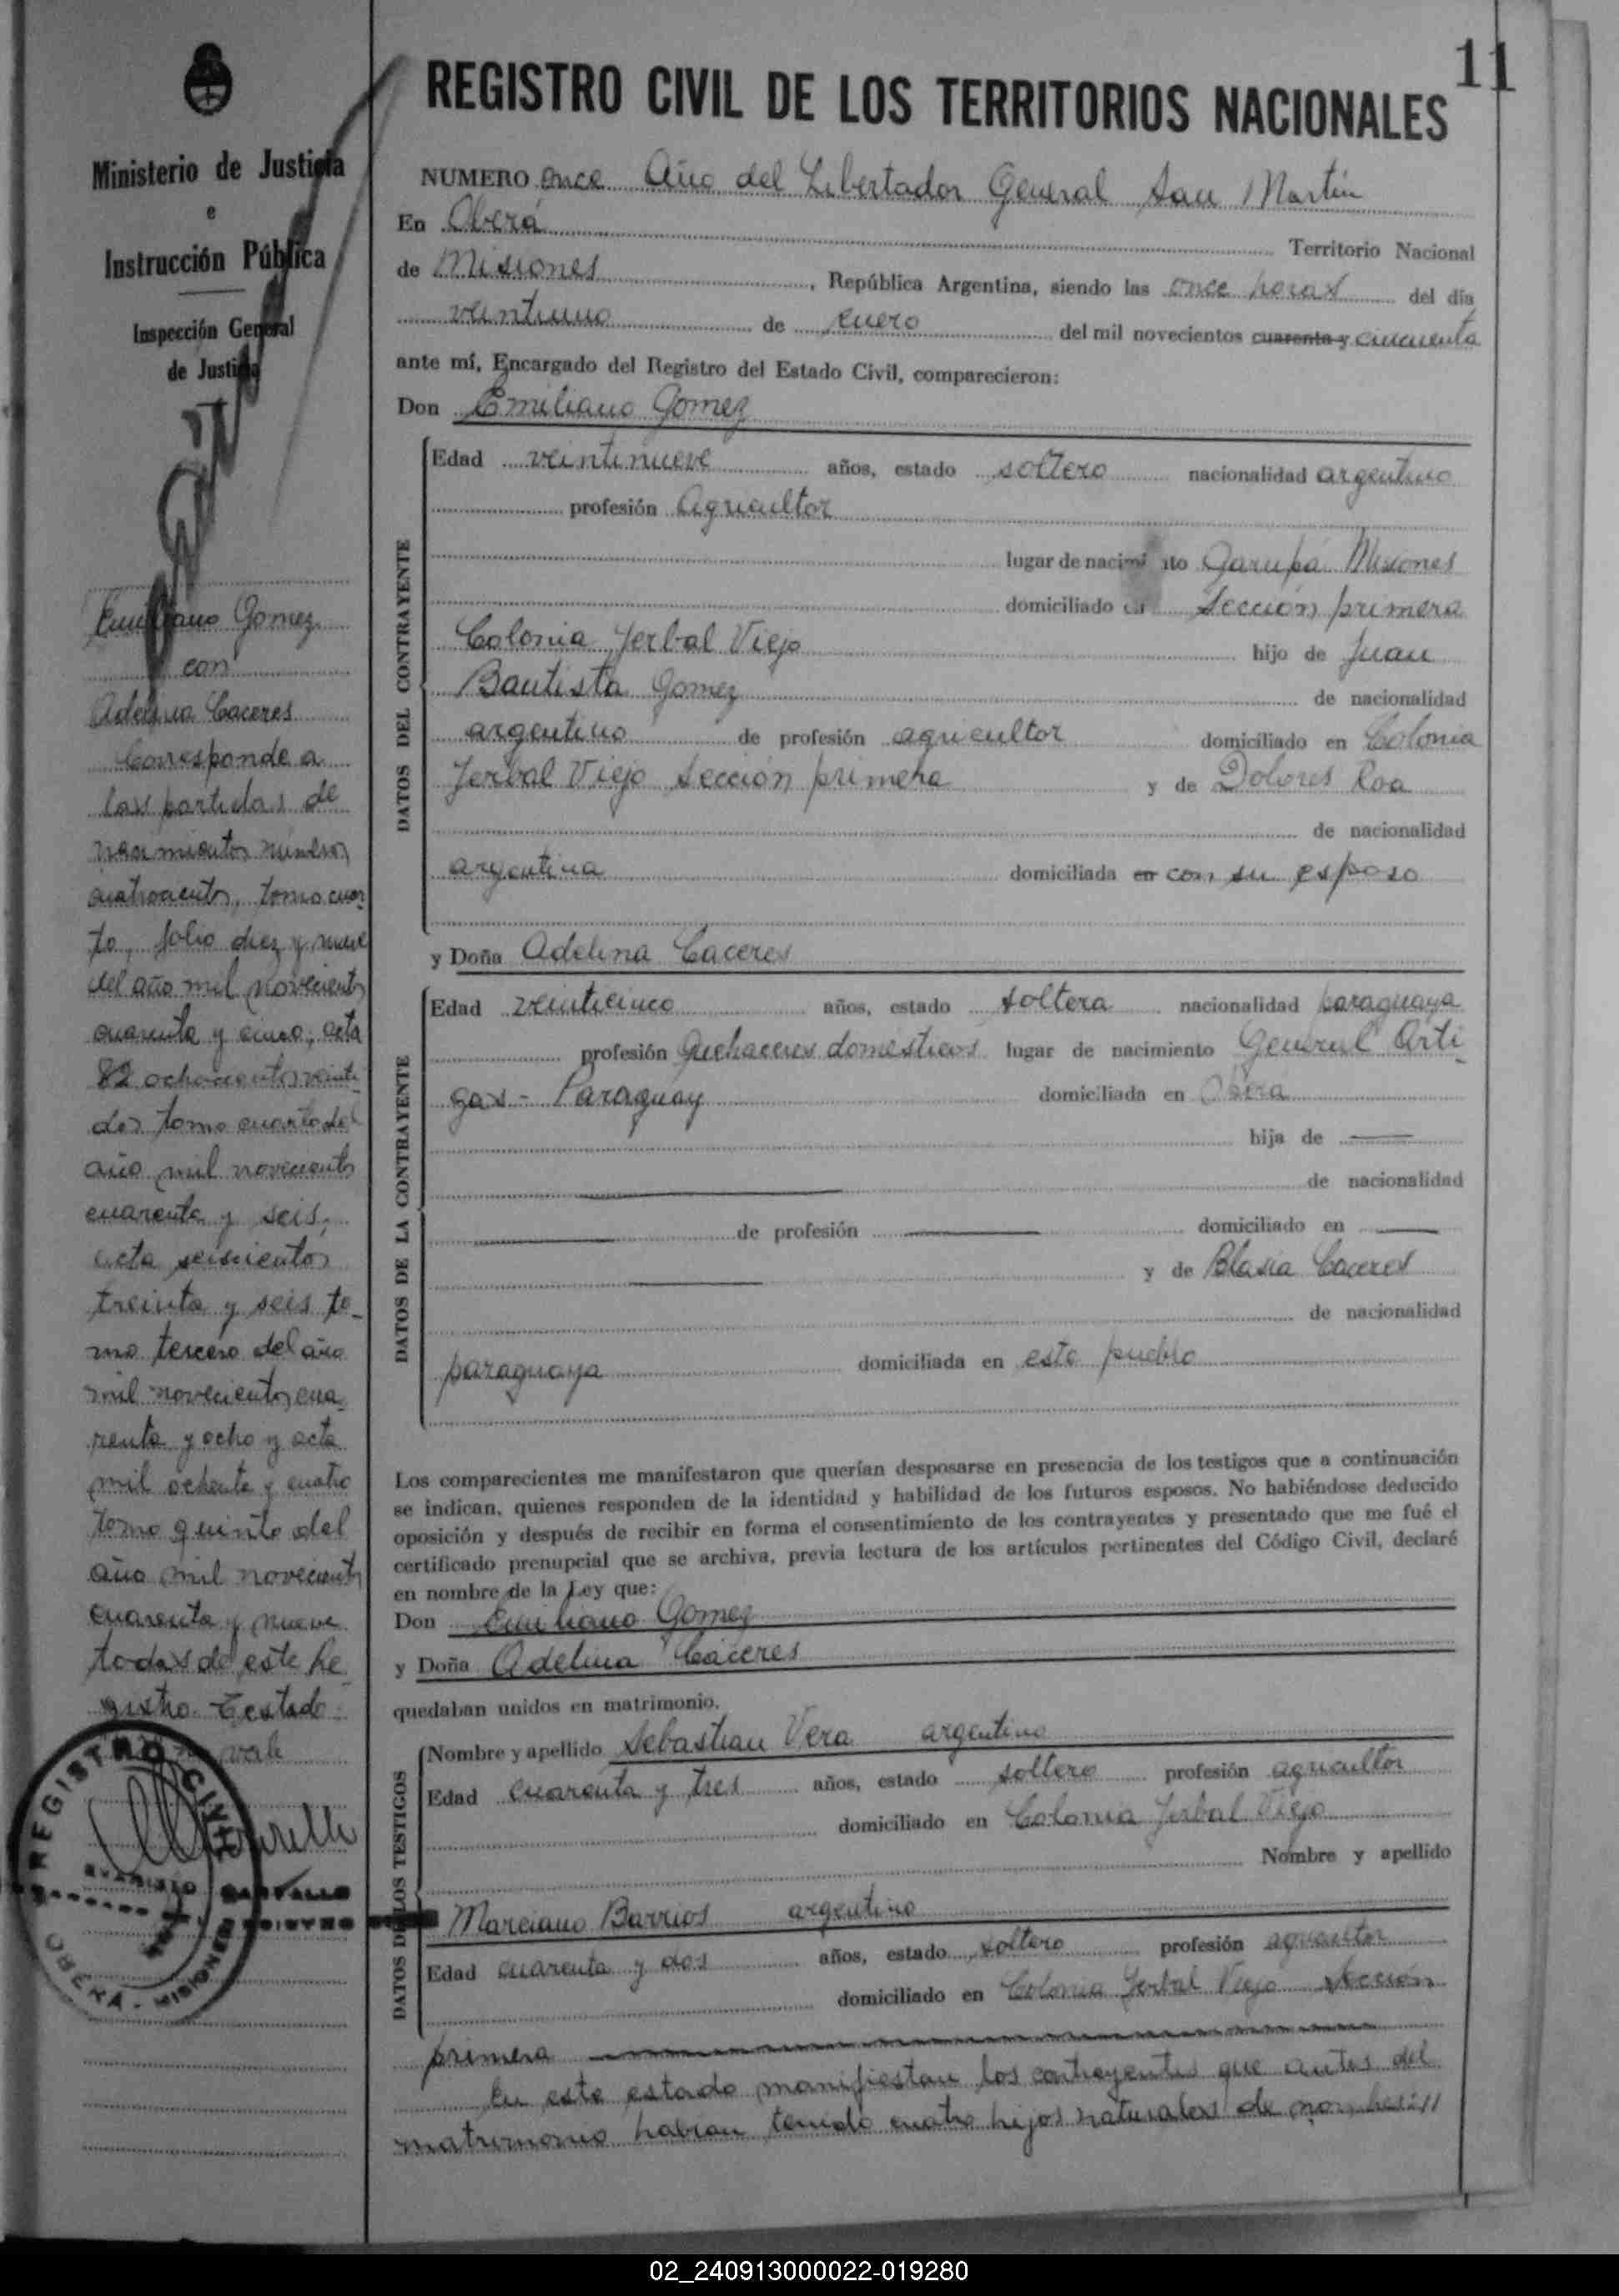 11
REGISTRO CIVIL DE LOS TERRITORIOS NACIONALES
NUMERO once Año del Libertador General San Martín
En Oberá Territorio Nacional
de Misiones, República Argentina, siendo las once horas del día
veintiuno de enero del mil novecientos cuarenta y cincuenta
ante mí, Encargado del Registro del Estado Civil, comparecieron:
Don Emiliano Gomez
DATOS DEL CONTRAYENTE
Edad veintinueve años, estado soltero nacionalidad argentino
profesión Agricultor
lugar de nacimiento Garupá Misiones
domiciliado en Sección primera
Colonia Yerbal Viejo hijo de Juan
Bautista Gomez de nacionalidad
argentino de profesión agricultor domiciliado en Colonia
Yerbal Viejo Sección primera y de Dolores Roa
de nacionalidad
argentina domiciliada en con su esposo
y Doña Adelina Caceres
DATOS DE LA CONTRAYENTE
Edad veinticinco años, estado soltera nacionalidad paraguaya
profesión Quehaceres domesticos lugar de nacimiento General Arti-
gas - Paraguay domiciliada en Oberá
hija de
de nacionalidad
de profesión domiciliado en
y de Blasia Caceres
de nacionalidad
paraguaya domiciliada en este pueblo
Los comparecientes me manifestaron que querían desposarse en presencia de los testigos que a continuación
se indican, quienes responden de la identidad y habilidad de los futuros esposos. No habiéndose deducido
oposición y después de recibir en forma el consentimiento de los contrayentes y presentado que me fué el
certificado prenupcial que se archiva, previa lectura de los artículos pertinentes del Código Civil, declaré
en nombre de la Ley que:
Don Emiliano Gomez
y Doña Adelina Caceres
quedaban unidos en matrimonio.
DATOS DE LOS TESTIGOS
Nombre y apellido Sebastian Vera argentino
Edad cuarenta y tres años, estado soltero profesión agricultor
domiciliado en Colonia Yerbal Viejo
Nombre y apellido
Marciano Barrios argentino
Edad cuarenta y dos años, estado soltero profesión agricultor
domiciliado en Colonia Yerbal Viejo Sección
primera
En este estado manifiestan los contrayentes que antes del
matrimonio habian tenido cuatro hijos naturales de nombres://
Ministerio de Justicia
e
Instrucción Pública
Inspección General
de Justicia
Emiliano Gomez
con
Adelina Caceres
Corresponde a
las partidas de
nacimientos número
cuatrocientos, tomo cuar
to, folio diez y nueve
del año mil novecientos
cuarenta y cinco; acta
82 ochocientos veinti
dos tomo cuarto del
año mil novecientos
cuarenta y seis;
acta seiscientos
treinta y seis to-
mo tercero del año
mil novecientos cua-
renta y ocho y acta
mil ochenta y cuatro
tomo quinto del
año mil novecientos
cuarenta y nueve
todas de este Re
gistro. Testado:
vale
REGISTRO CIVIL
OBERA - MISIONES
02_240913000022-019280